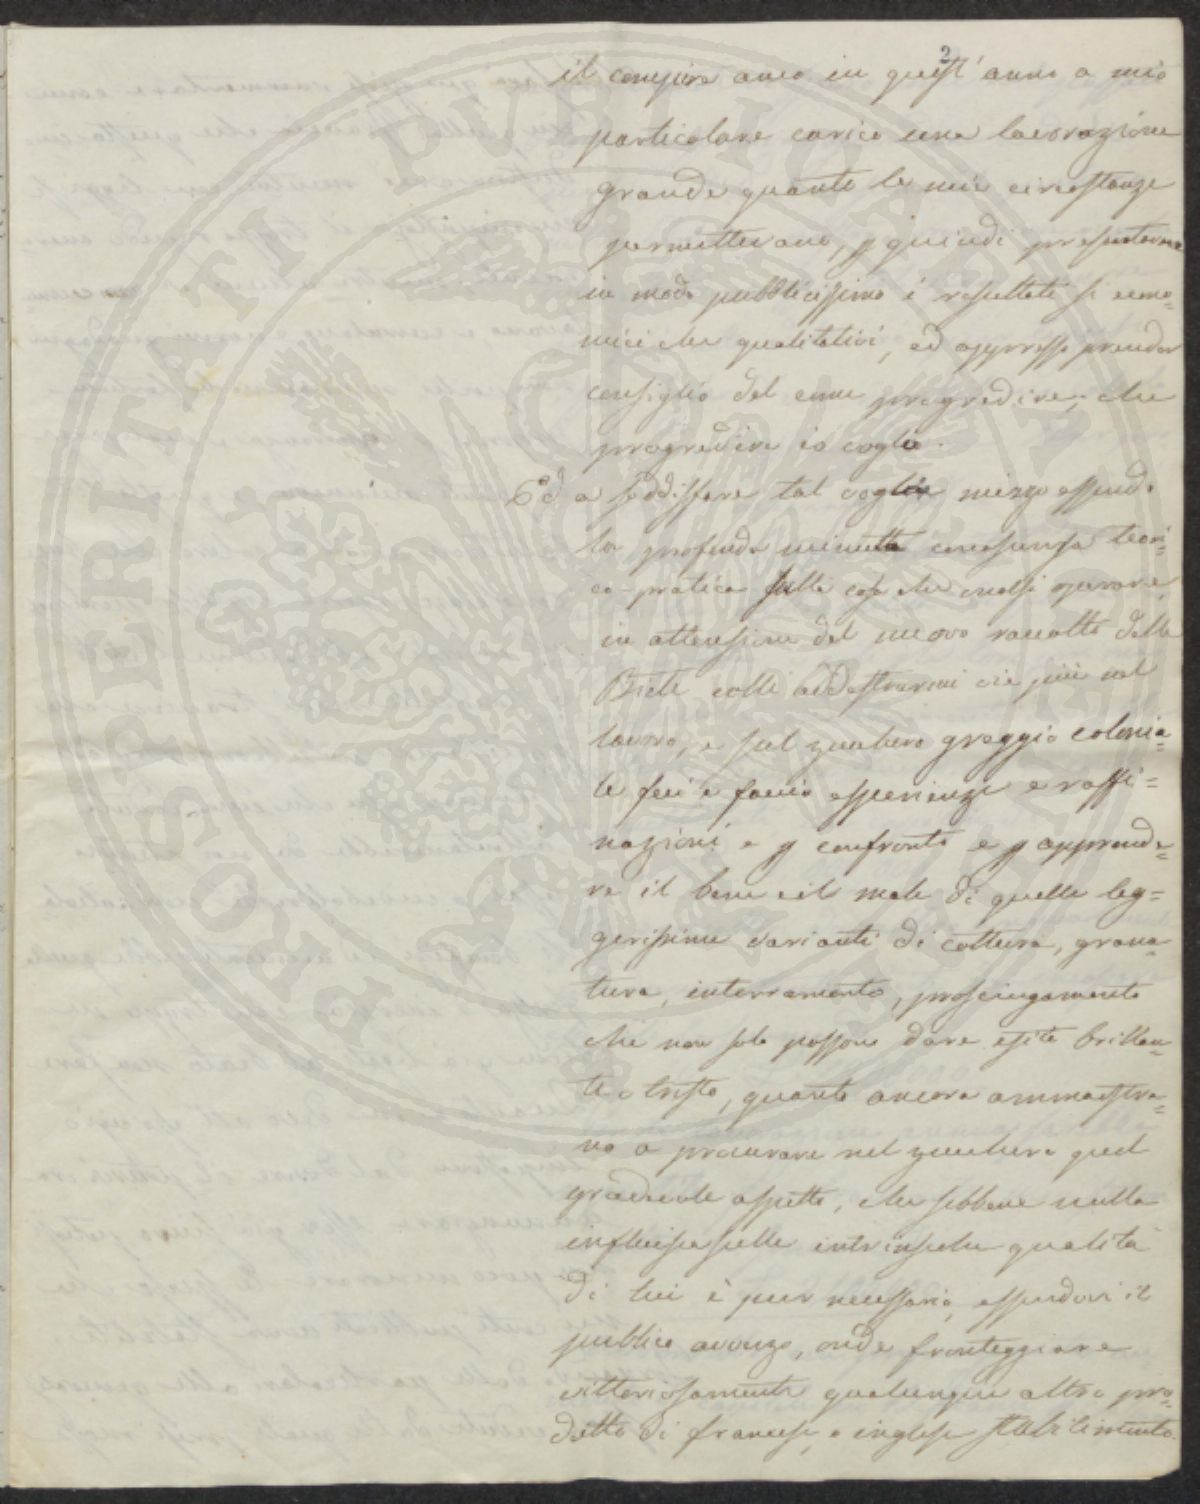 2
il compire anco in quest'anno a mio
particolare carico una lavorazione
grande quanto le mie circostanze
permettevano, p quindi presentarne
in modo pubblicissimo i resultati sì econo=
mici che qualitativi, ed appresso prender
consiglio del come progredire, che
progredire io voglio.
Ed a soddisfare tal voglia mezzo essendo
la profonda minuta conoscenza teori=
co-pratica sulla cosa che vuolsi operare,
in attensione del nuovo raccolto delle
Biete volli addestrarmi vie più nel
lavoro, e sul zucchero greggio colonia=
le feci e faccio esperienze e raffi=
nazioni e p confronto e p apprende=
re il bene e il male di quelle leg=
gerissime varianti di cottura, grana=
tura, interramento, prosciugamento
che non solo possono dare esito brillan=
te o tristo, quanto ancora ammaestra=
no a procurare nel zucchero quel
gradevole aspetto, che sebbene nulla
influisca sulle intrinseche qualità
di lui è pur necessario, essendovi il
pubblico avvezzo, onde fronteggiare
vittoriosamente qualunque altro pro=
dotto di francese, o inglese stabilimento.
PROSPERITATI PVBLICAE